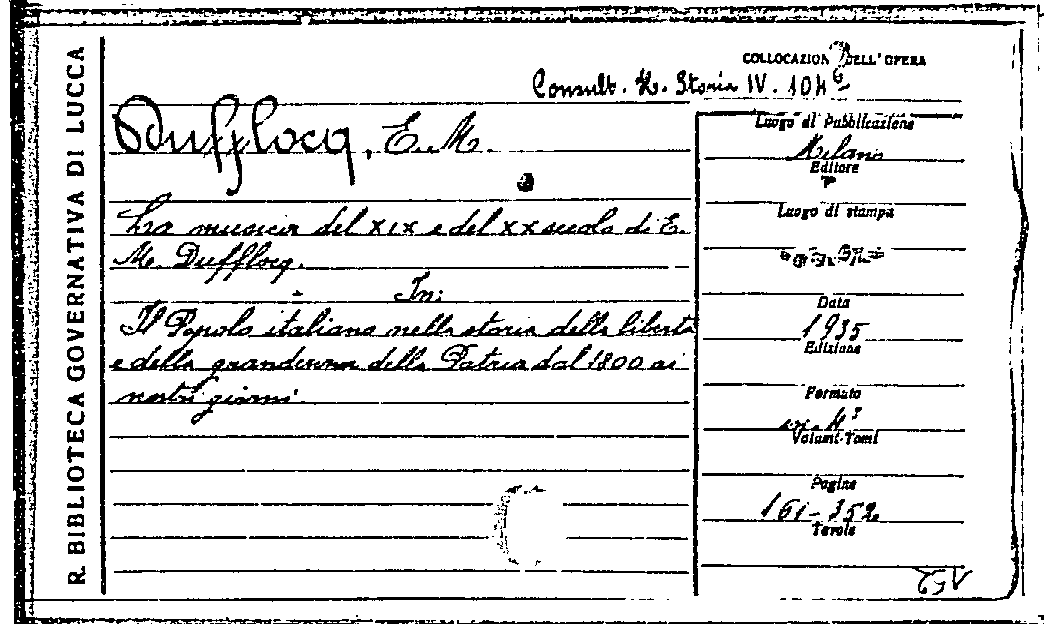 R. BIBLIOTECA GOVERNATIVA DI LUCCA
COLLOCAZIONE DELL' OPERA
Consult. Storia IV. 104
Dufflocq, E. M.
La musica del XIX e del XX secolo di E.
M. Dufflocq.
In:
Il Popolo italiano nella storia della libertà
e della grandezza della Patria dal 1800 ai
nostri giorni.
Luogo di Pubblicazione
Milano
Editore
Luogo di stampa
Data
1935
Edizione
Formato
in-4°
Volumi-Tomi
Pagine
161-352
Tavole